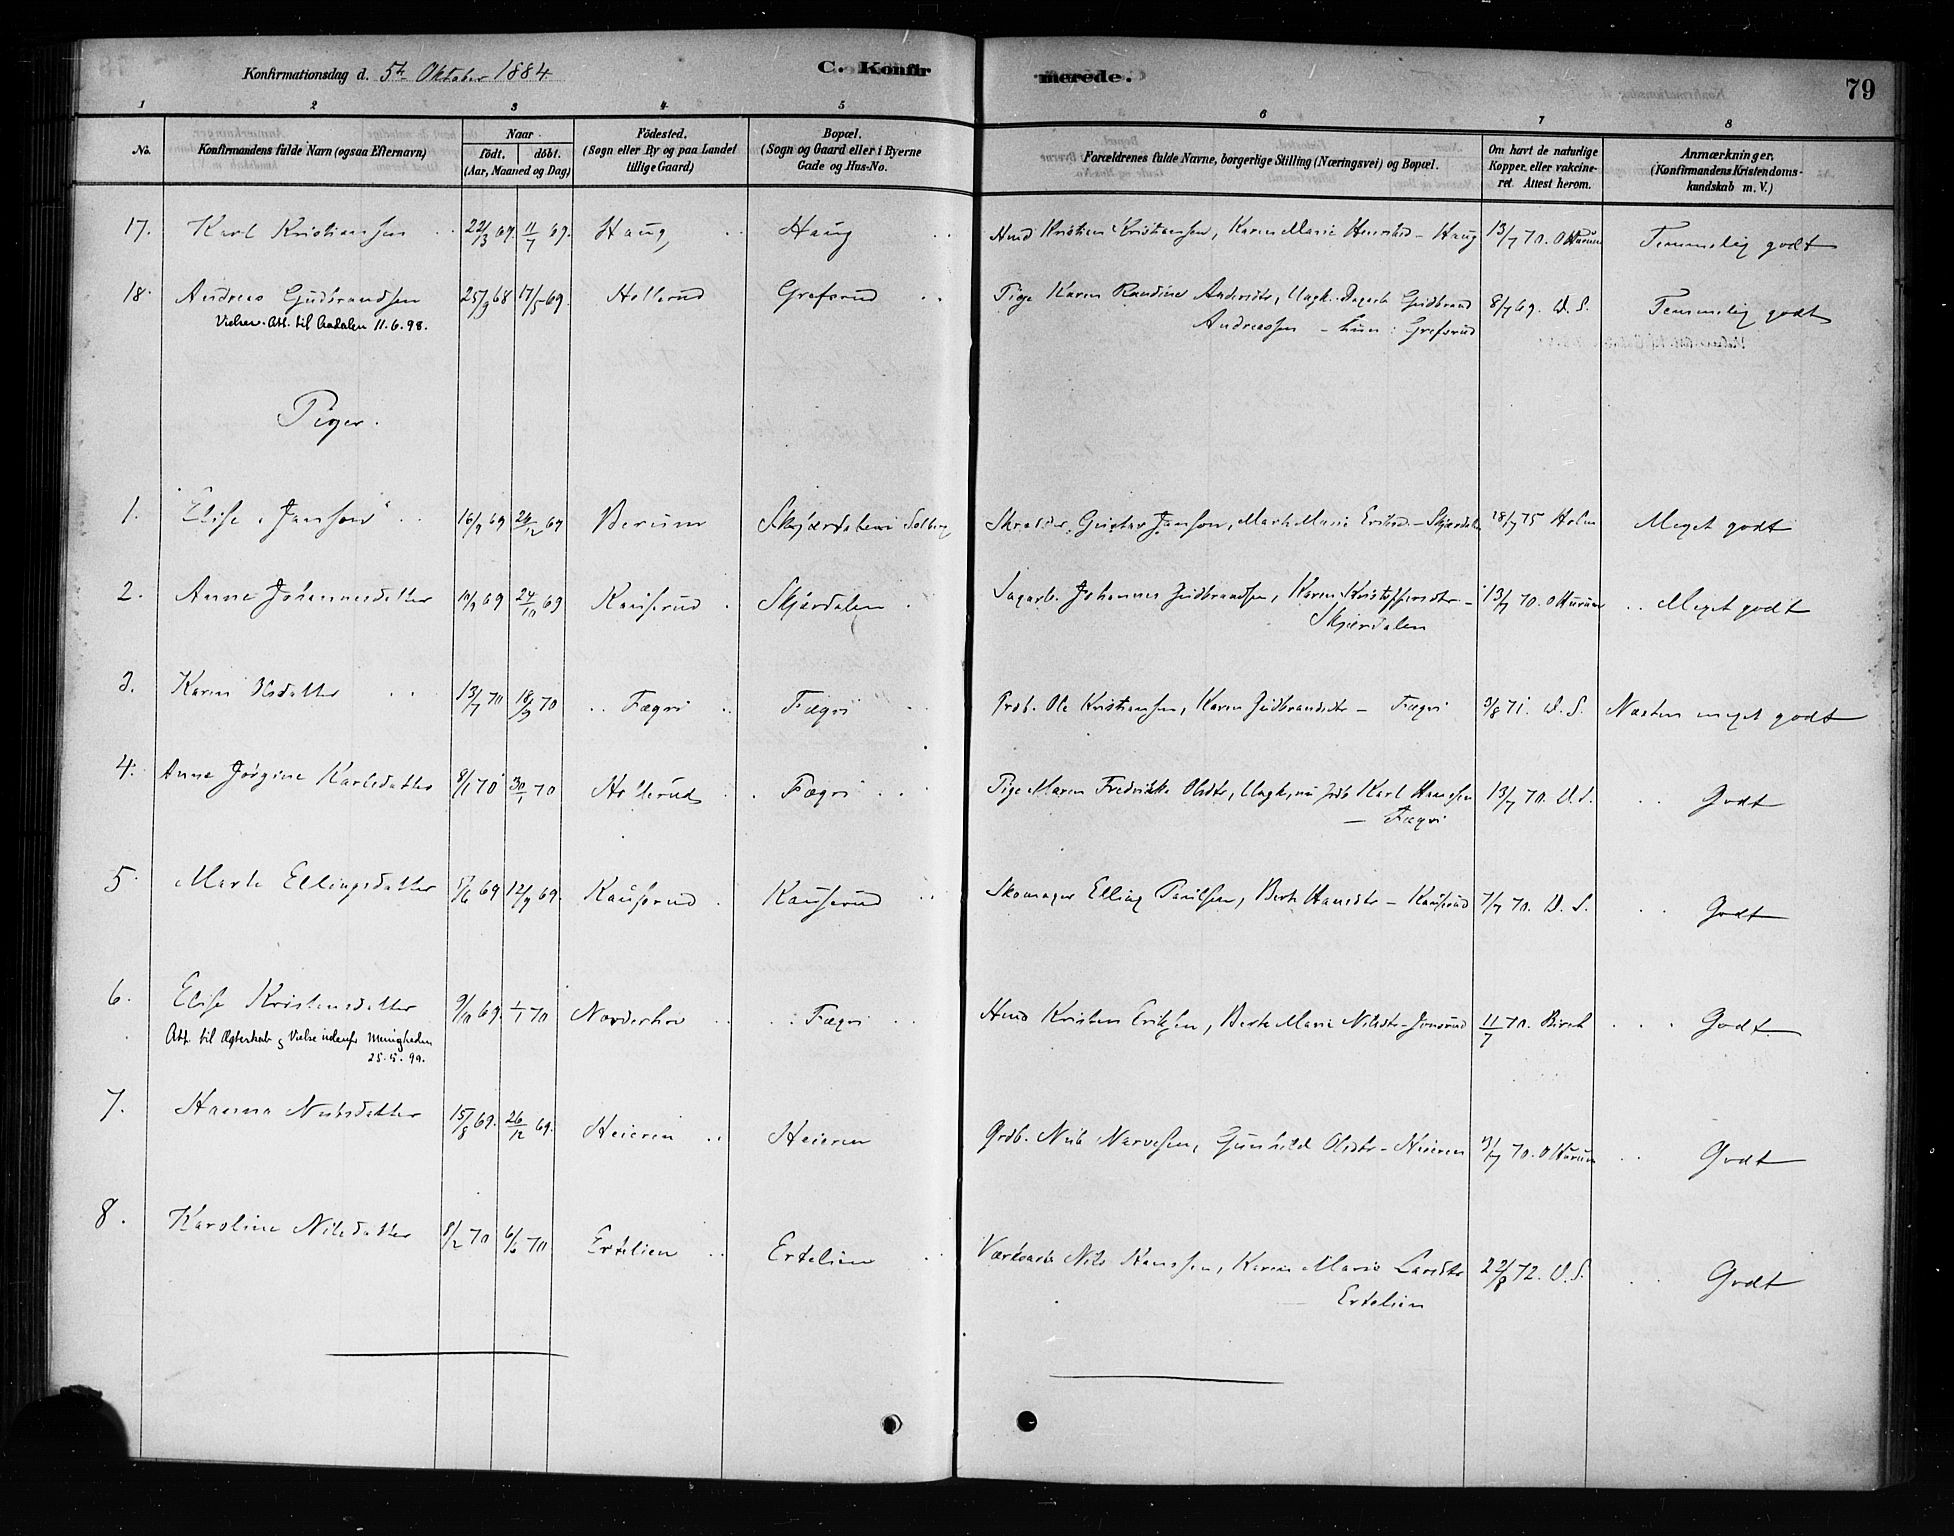 Konfirmationsdag d. 5te Oktober 1884 C. Konfirmerede. 79
1 2 3 4 5 6 7 8
No. Konfirmandens fulde Navn (ogsaa Efternavn) Naar født. døbt. (Aar, Maaned og Dag) Fødested. (Sogn eller By og paa Landet tillige Gaard) Bopæl. (Sogn og Gaard eller i Byerne Gade og Hus-No. Forældrenes fulde Navne, borgerlige Stilling (Næringsvei) og Bopæl. Om havt de naturlige Kopper, eller vakcineret. Attest herom. Anmærkninger. (Konfirmandens Kristendomskundskab m. V.)
17. Karl Kristiansen 22/3 69. 11/7 69. Haug Haug Hmd Kristian Kristiansen, Karen Marie - Haug 13/7 70. O Hurum Temmelig godt
18. Andreas Gudbrandsen 25/9 68 17/5 69. Hollerud Grefsrud Pige Karen Randine Andersdtr, Ungk. Gudbrand 8/7 69. O. S. Temmelig godt
Vielses-Att. til Aadalen 11.6.98. Andreassen - hun: Grefsrud
Piger.
1. "Elise Janson" 16/9 69 26/12 69 Berum Skjærdalen Solberg Gustav Janson, Marte Marie - Skjærdalen 18/7 75 Holm Meget godt
2. Anne Johannesdatter 10/9 69 24/10 69 Kauserud Skjærdalen Sagarb. Johannes Gudbrandsen, Karen Kristoffersdtr - 13/7 70. O Hurum Meget godt
Skjærdalen
3. Karen Olsdatter 13/7 70 18/9 70 Fægri Fægri Grdb. Ole Kristiansen, Karen Gudbrandsdtr - Fægri 9/8 71. O. S. Næsten meget godt
4. Anne Jørgine Karlsdatter 8/1 70 30/1 70 Hollerud Fægri Pige Maren Fredrikke Olsdtr, Ungk, nu Grdb Karl Hansen 13/7 70. O. S. Godt
- Fægri
5. Marte Ellingsdatter 17/6 69 12/9 69. Kauserud Kauserud Skomager Elling Paulsen, Berte Hansdtr - Kauserud 7/7 70. O. S. Godt
6. Elise Kristensdatter 9/10 69. 1/1 70 Norderhov Fægri Hmd Kristen Eriksen, Berte Marie Nilsdtr - 11/7 70. Birch Godt
Att. til Ægteskab & Vielse udenfor Menigheden
25.5.99.
7. Hanna Nilsdatter 15/8 69. 26/12 69. Heieren Heieren Grdb. Nils Narvesen, Gunhild Olsdtr - Heieren 13/7 70. O Hurum Godt
8. Karoline Nilsdatter 8/2 70 6/6 70 Ertelien Ertelien Nils Hanssen, Karen Marie Larsdtr 22/8 72. O. S. Godt
Ertelien